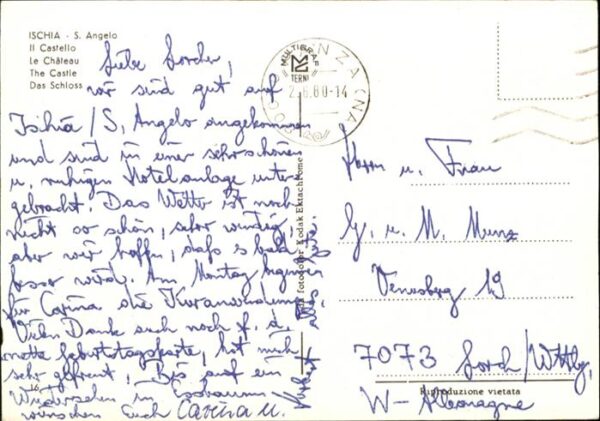 ISCHIA - S. Angelo
Il Castello
Le Château
The Castle
Das Schloss
Liebe Lorcher,
wir sind gut auf
Ischia/S. Angelo angekommen
und sind in einer sehr schönen
u. ruhigen Hotelanlage unter-
gebracht. Das Wetter ist noch
nicht so schön, sehr windig,
aber wir hoffen, daß s bald
besser wird. Am Montag beginnen
für Carina die Kuranwendungen.
Vielen Dank auch noch f. d.
nette Geburtstagskarte, hat mich
sehr gefreut. Bis auf ein
Wiedersehen in
wünschen Euch Carina u.
alles Gute.
MULTIGRAF
TERNI
2.6.80-14
fotocolor Kodak Ektachrome
Herrn u. Frau
G. u. M. Munz
Venusberg 19
7073 Lorch/Wttbg.
W-Allemagne
Riproduzione vietata
16